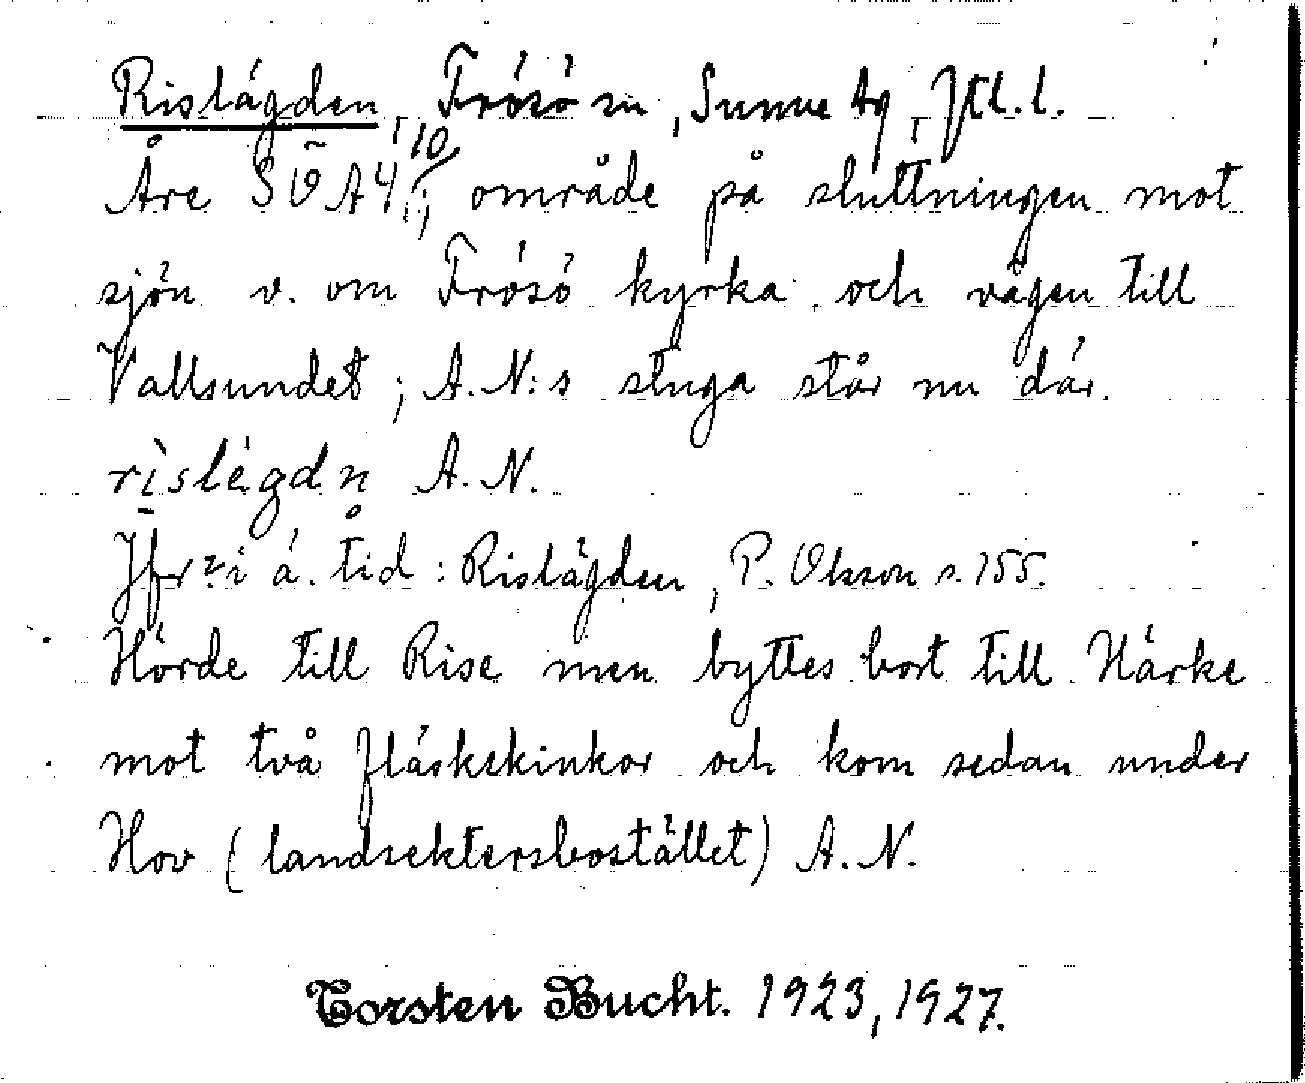 Rislägden, Frösö sn, Sunne tg, Jtl.l.
Åre SÖ A4, 10; område på sluttningen mot
sjön v. om Frösö kyrka och vägen till
Vallsundet; A.N:s stuga står nu där.
rislégdn A.N.
Jfr i ä. tid: Rislägden, P. Olsson s. 155.
Hörde till Rise men byttes bort till Härke
mot två fläskskinkor och kom sedan under
Hov (landsektersbostället) A.N.
Torsten Bucht. 1923, 1927.